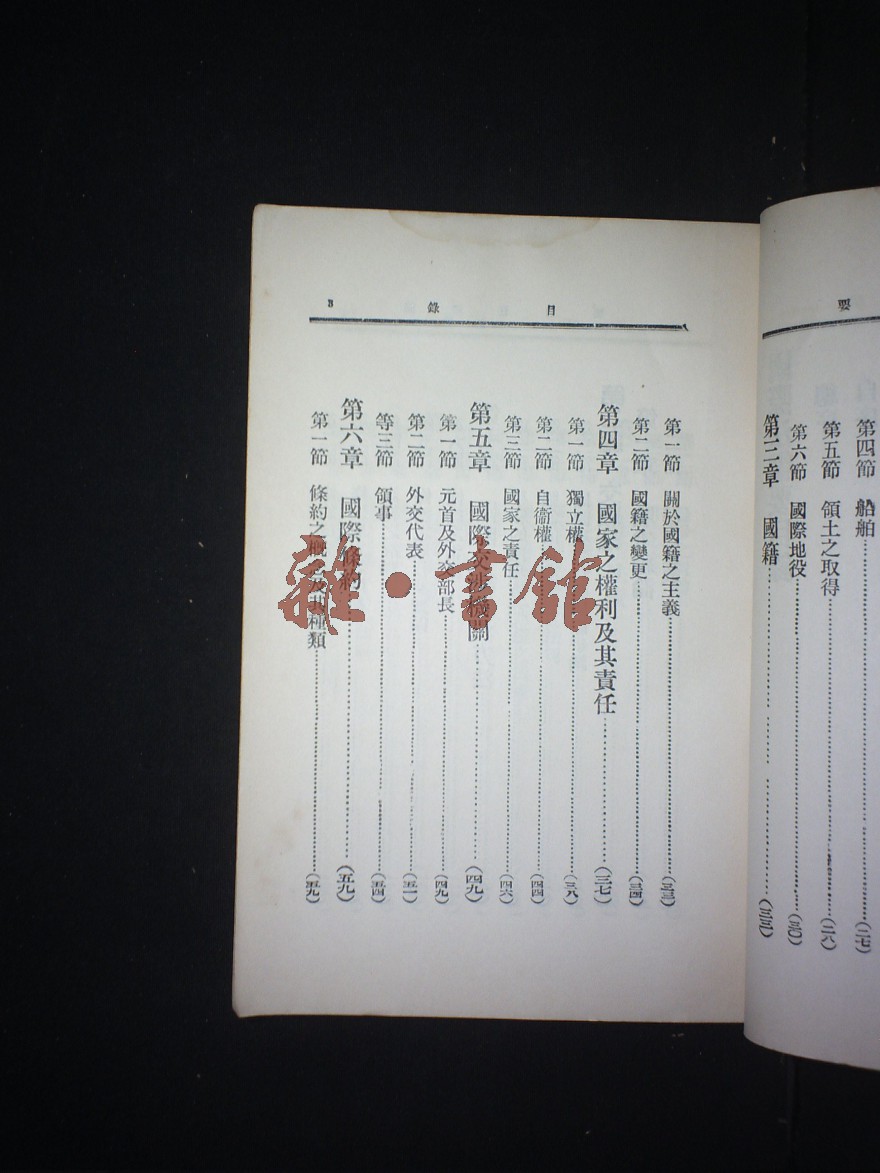 要
第四節 船舶………(二七)
第五節 領土之取得………(二八)
第六節 國際地役………(三〇)
第三章 國籍………(三三)
目 錄 3
第一節 關於國籍之主義………(三三)
第二節 國籍之變更………(三四)
第四章 國家之權利及其責任………(三七)
第一節 獨立權………(三八)
第二節 自衞權………(四四)
第三節 國家之責任………(四六)
第五章 國際交涉機關………(四九)
第一節 元首及外交部長………(四九)
第二節 外交代表………(五一)
等三節 領事………(五四)
第六章 國際條約………(五九)
第一節 條約之概念及其種類………(五九)
雜·書館